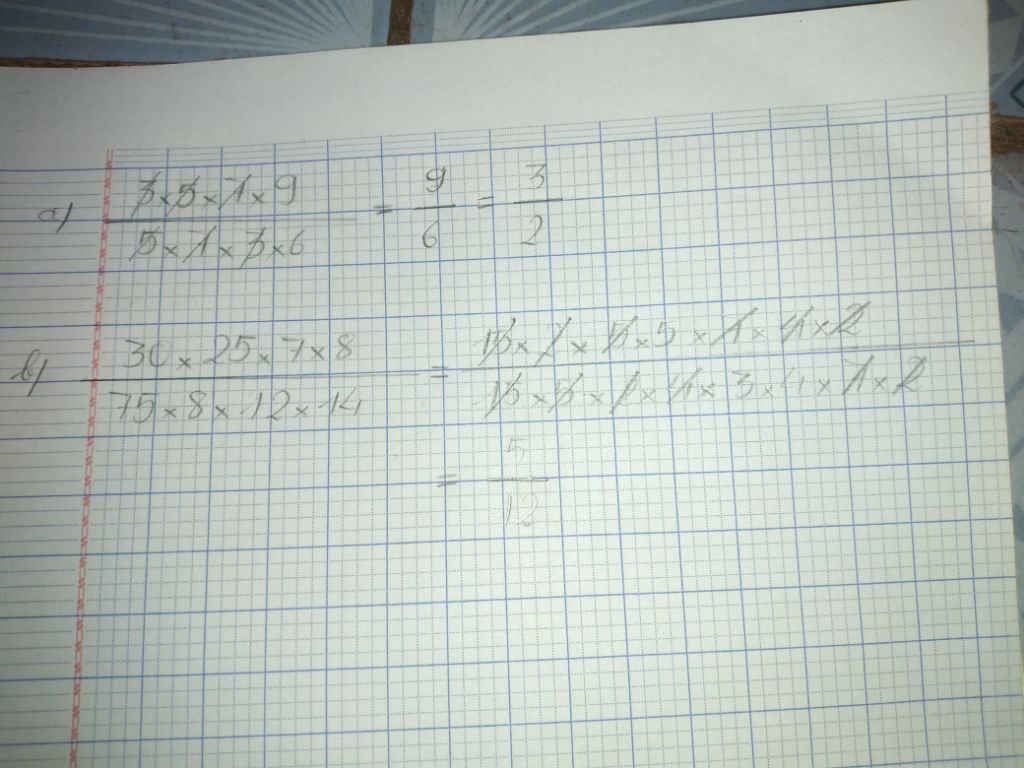 a) 3 × 5 × 7 × 9 / 5 × 7 × 3 × 6 = 9/6 = 3/2
b) 30 × 25 × 7 × 8 / 75 × 8 × 12 × 14 = 15 × 2 × 5 × 5 × 7 × 4 × 2 / 15 × 5 × 2 × 4 × 3 × 4 × 7 × 2
= 5/12